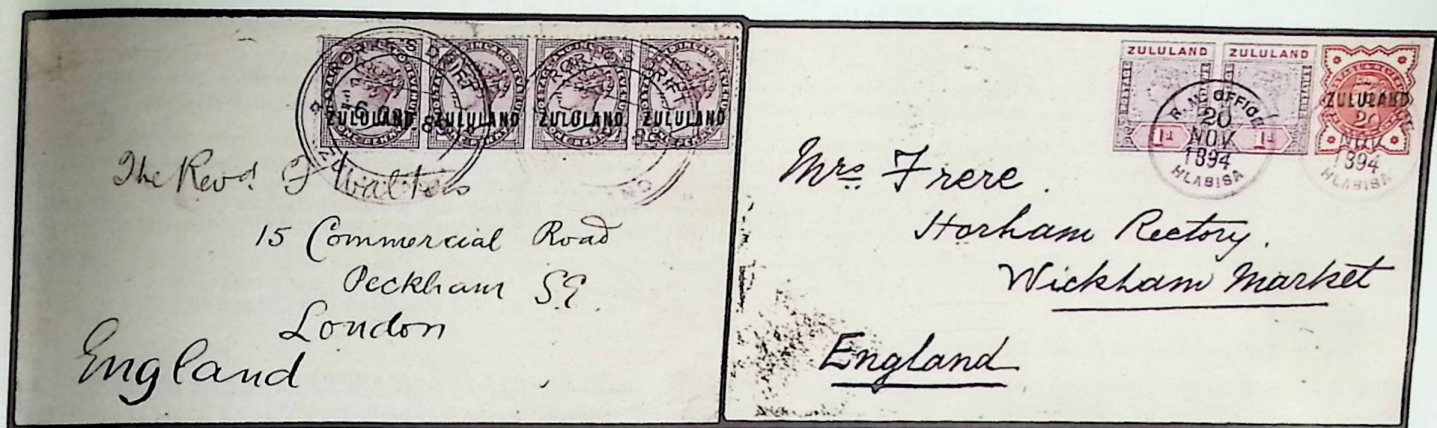 RORKE'S DRIFT
ZULULAND ZULULAND ZULULAND ZULULAND
The Revd. F Walters
15 Commercial Road
Peckham S.E.
London
England
ZULULAND ZULULAND
ZULULAND
1d 1d
OFFICE
20
NOV
1894
HLABISA
20
NOV
1894
HLABISA
Mrs Frere.
Horham Rectory.
Wickham Market
England